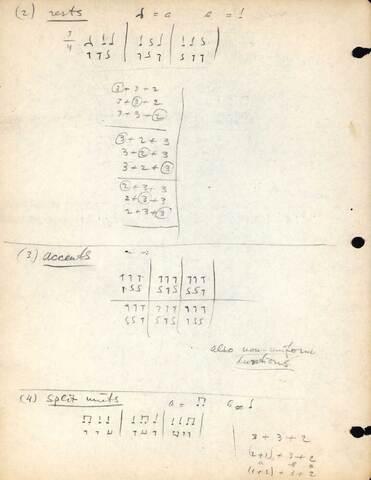 (2) rests = a a =
3
4
3 + 3 + 2
3 + 3 + 2
3 + 3 + 2
3 + 2 + 3
3 + 2 + 3
3 + 2 + 3
2 + 3 + 3
2 + 3 + 3
2 + 3 + 3
(3) accents
also non-uniform
(4) split units a =
3 + 3 + 2
(2+1) + 3 + 2
(1+2) + 3 + 2